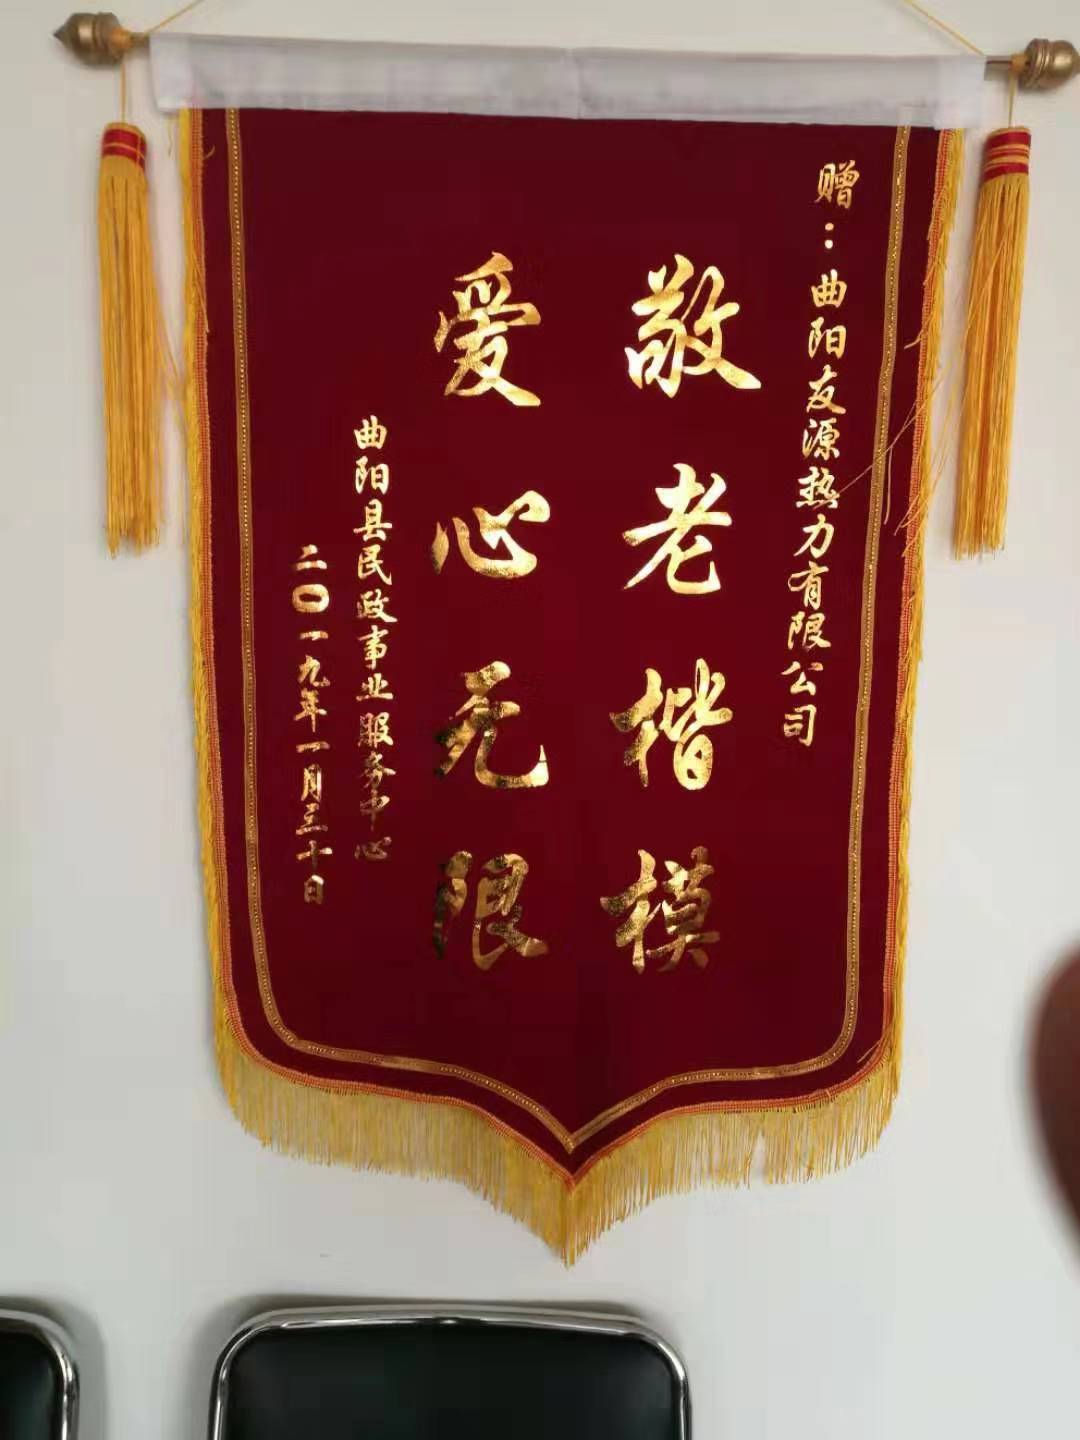 赠：曲阳友源热力有限公司
敬老楷模
爱心无限
曲阳县民政事业服务中心
二〇一九年一月三十日